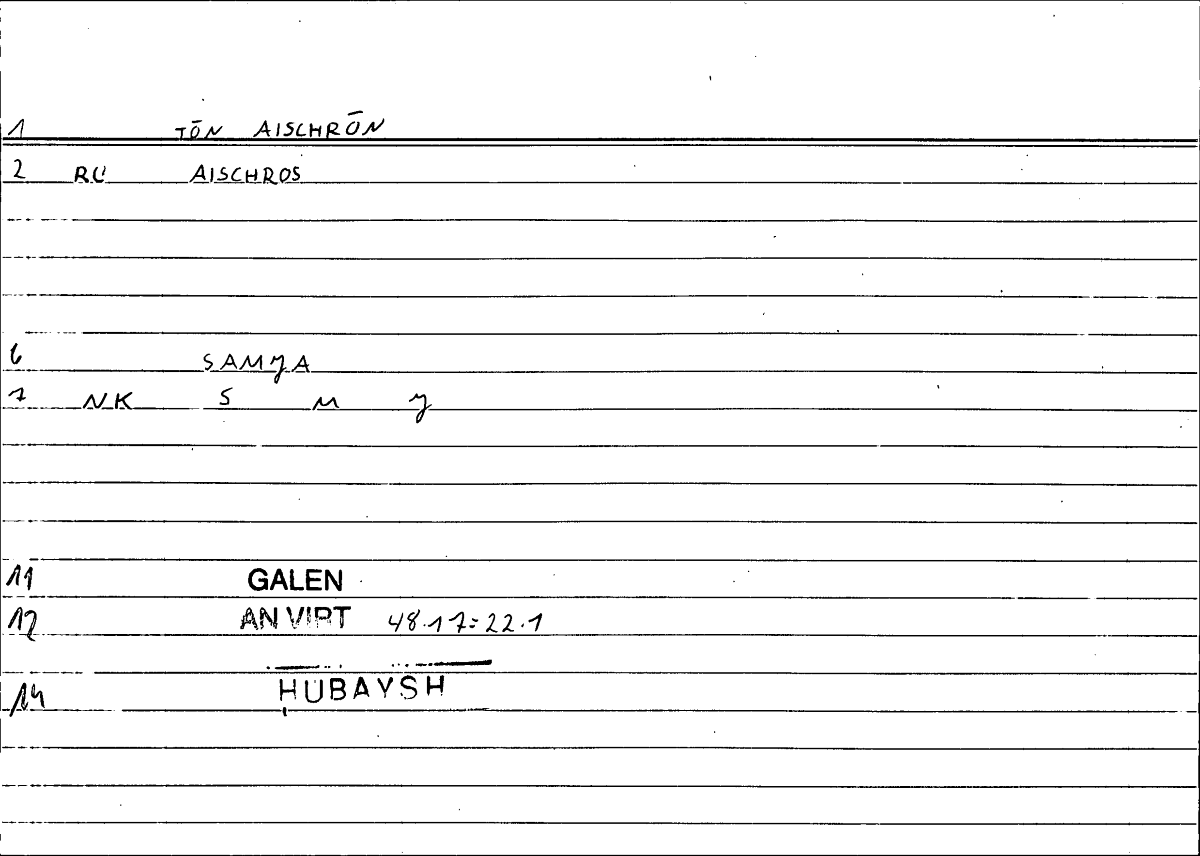 1 TŌN AISCHRŌN
2 RC AISCHROS
6 SAMJA
7 NK S M J
11 GALEN
12 AN VIRT 48.17=22.1
14 ḤUBAYSH